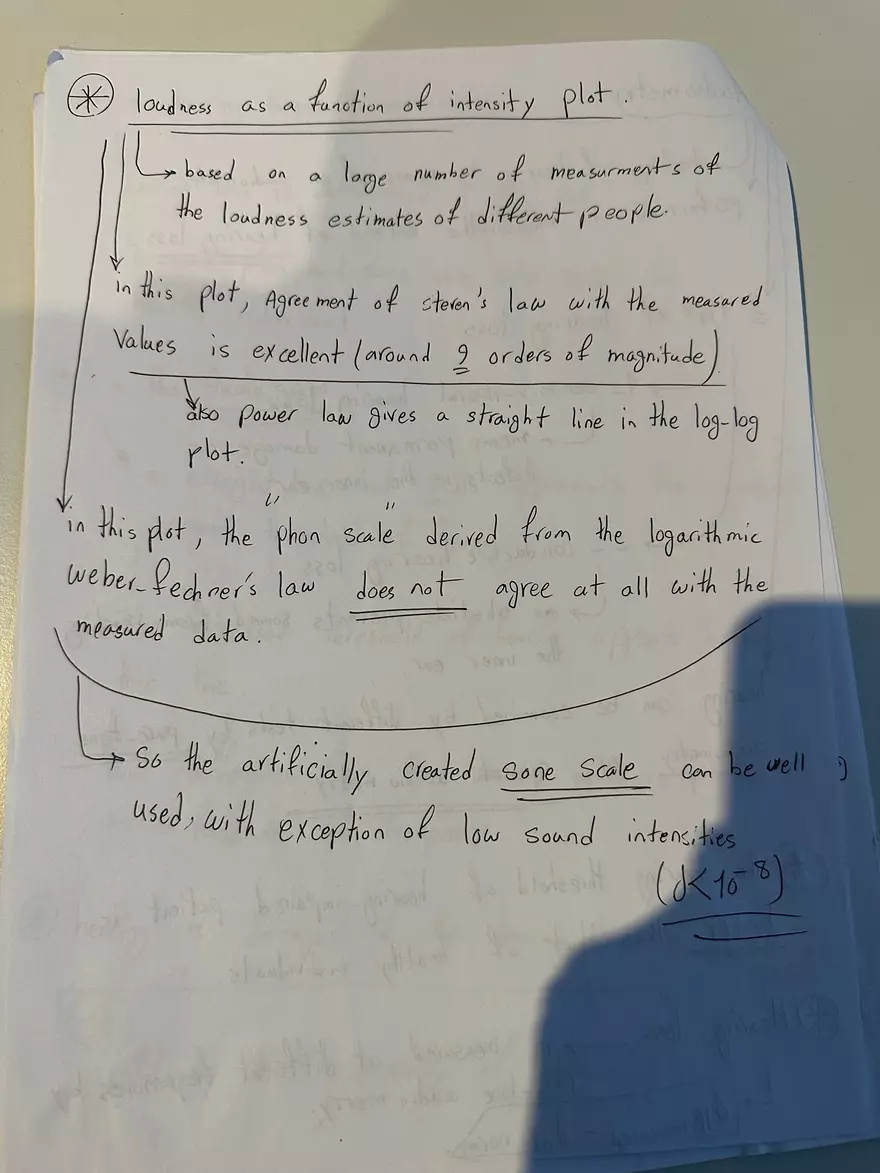 loudness as a function of intensity plot.
based on a large number of measurments of
the loudness estimates of different people.
in this plot, Agreement of steven's law with the measured
Values is excellent (around 9 orders of magnitude)
also power law gives a straight line in the log-log
plot.
in this plot, the "phon scale" derived from the logarithmic
weber-fechner's law does not agree at all with the
measured data.
So the artificially created sone scale can be well
used, with exception of low sound intensities
(J<10^-8)